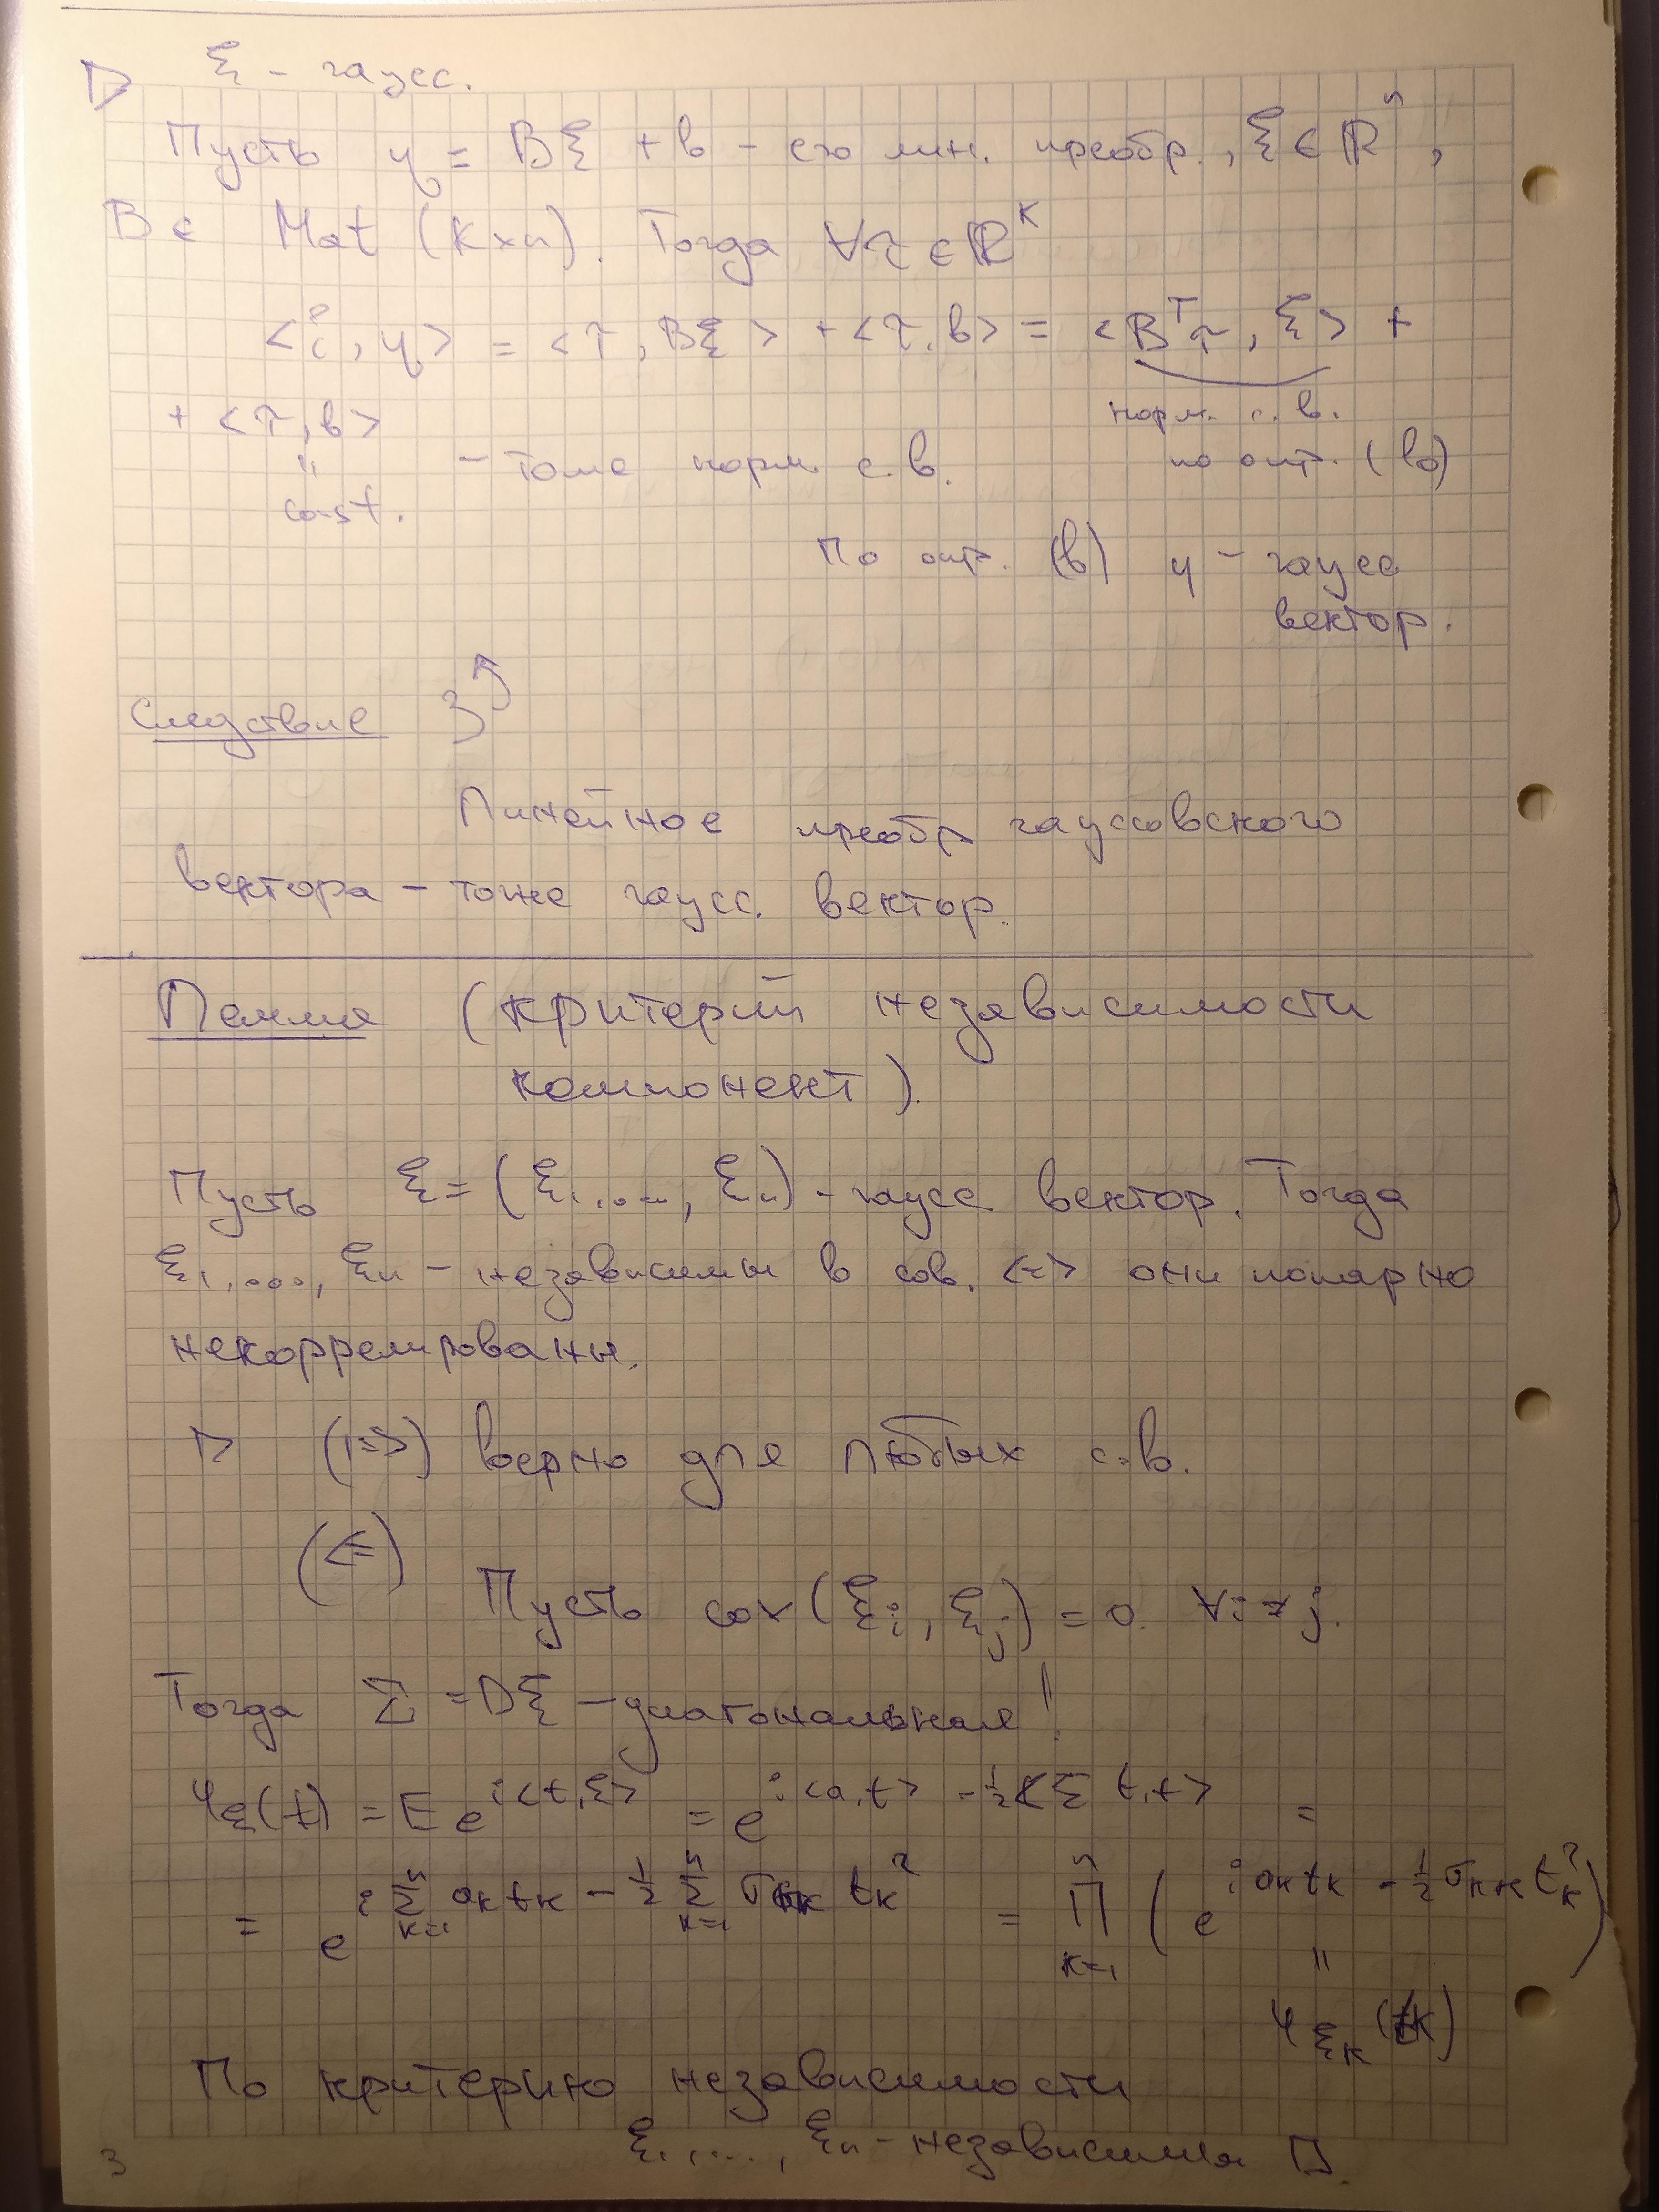 ▷ ξ - гаусс.
Пусть η = Bξ + b - его лин. преобр., ξ ∈ ℝⁿ,
B ∈ Mat (k×n). Тогда ∀τ ∈ ℝᵏ
<τ, η> = <τ, Bξ> + <τ, b> = <Bᵀτ, ξ> +
норм. с. в.
+ <τ, b> - тоже норм. с. в. по опр. (b)
"
const.
По опр. (b) η - гаусс
вектор.
Следствие 3
Линейное преобр гауссовского
вектора - тоже гаусс. вектор.
Лемма (критерий независимости
компонент).
Пусть ξ = (ξ₁, ..., ξₙ) - гаусс вектор. Тогда
ξ₁, ..., ξₙ - независимы в сов. <=> они попарно
некоррелированы.
▷ (=>) верно для любых с.в.
(<=)
Пусть cov(ξᵢ, ξⱼ) = 0. ∀i ≠ j.
Тогда Σ = Dξ - диагональная!
φ_ξ(t) = E e^{i<t,ξ>} = e^{i<a,t> - ½<Σt,t>} =
= e^{i Σ_{k=1}^n a_k t_k - ½ Σ_{k=1}^n σ_{kk} t_k²} = Π_{k=1}^n (e^{i a_k t_k - ½ σ_{kk} t_k²})
"
φ_{ξ_k}(t_k)
По критерию независимости
ξ₁, ..., ξₙ - независимы □.
3